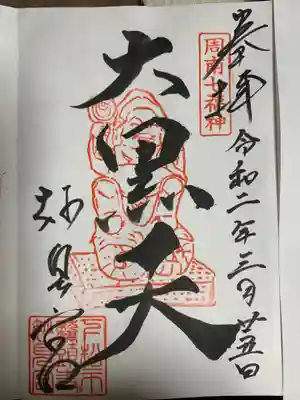 奉拝
周南七福神
令和二年三月廿五日
大黒天
妙見宮